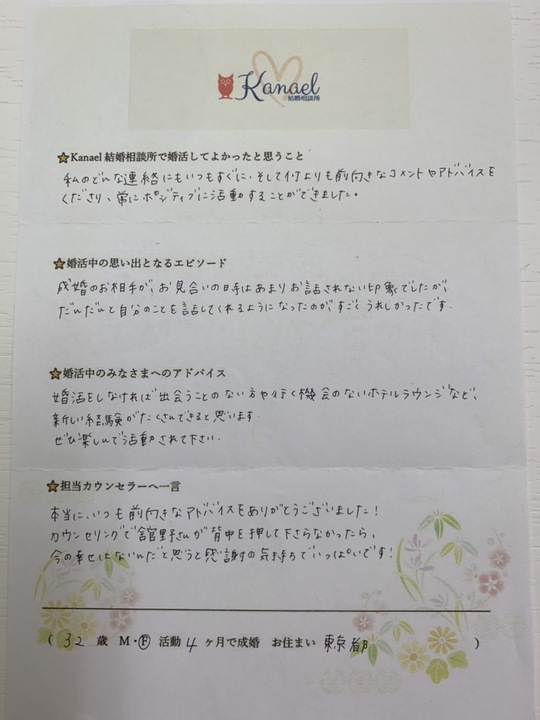 Kanael
結婚相談所
Kanael 結婚相談所で婚活してよかったと思うこと
私のどんな連絡にもいつもすぐに、そして何よりも前向きなコメントやアドバイスを
くださり、常にポジティブに活動することができました。
婚活中の思い出となるエピソード
成婚のお相手が、お見合いの日はあまりお話されない印象でしたが、
だんだんと自分のことを話してくれるようになったのが、すごくうれしかったです.
婚活中のみなさまへのアドバイス
婚活をしなければ出会うことのない方や行く機会のないホテルラウンジなど、
新しい経験がたくさんできると思います.
ぜひ楽しんで活動されて下さい.
担当カウンセラーへ一言
本当に、いつも前向きなアドバイスをありがとうございました!
カウンセリングで舘野さんが背中を押して下さらなかったら、
今の幸せはないんだと思うと感謝の気持ちでいっぱいです!
( 32 歳 M・F 活動 4 ケ月で成婚 お住まい 東京都 )